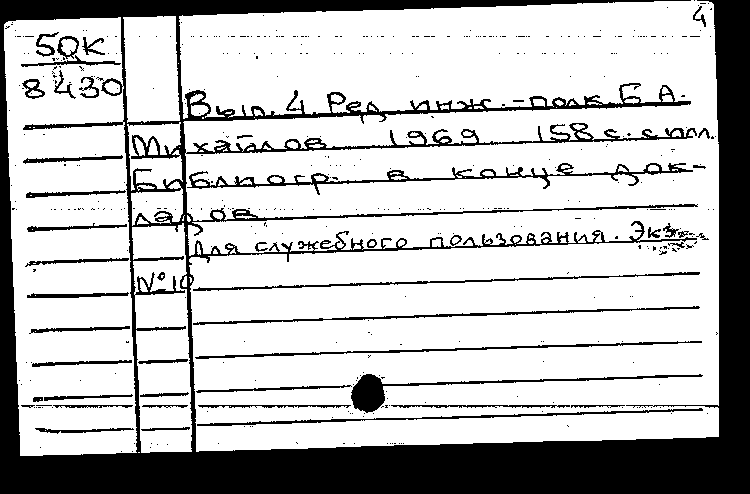 4
50К
8430
Вып. 4. Ред. инж.-полк. Б. А.
Михайлов 1969 158 с. с илл.
Библиогр. в конце док-
ладов
Для служебного пользования. Экз.
№ 10